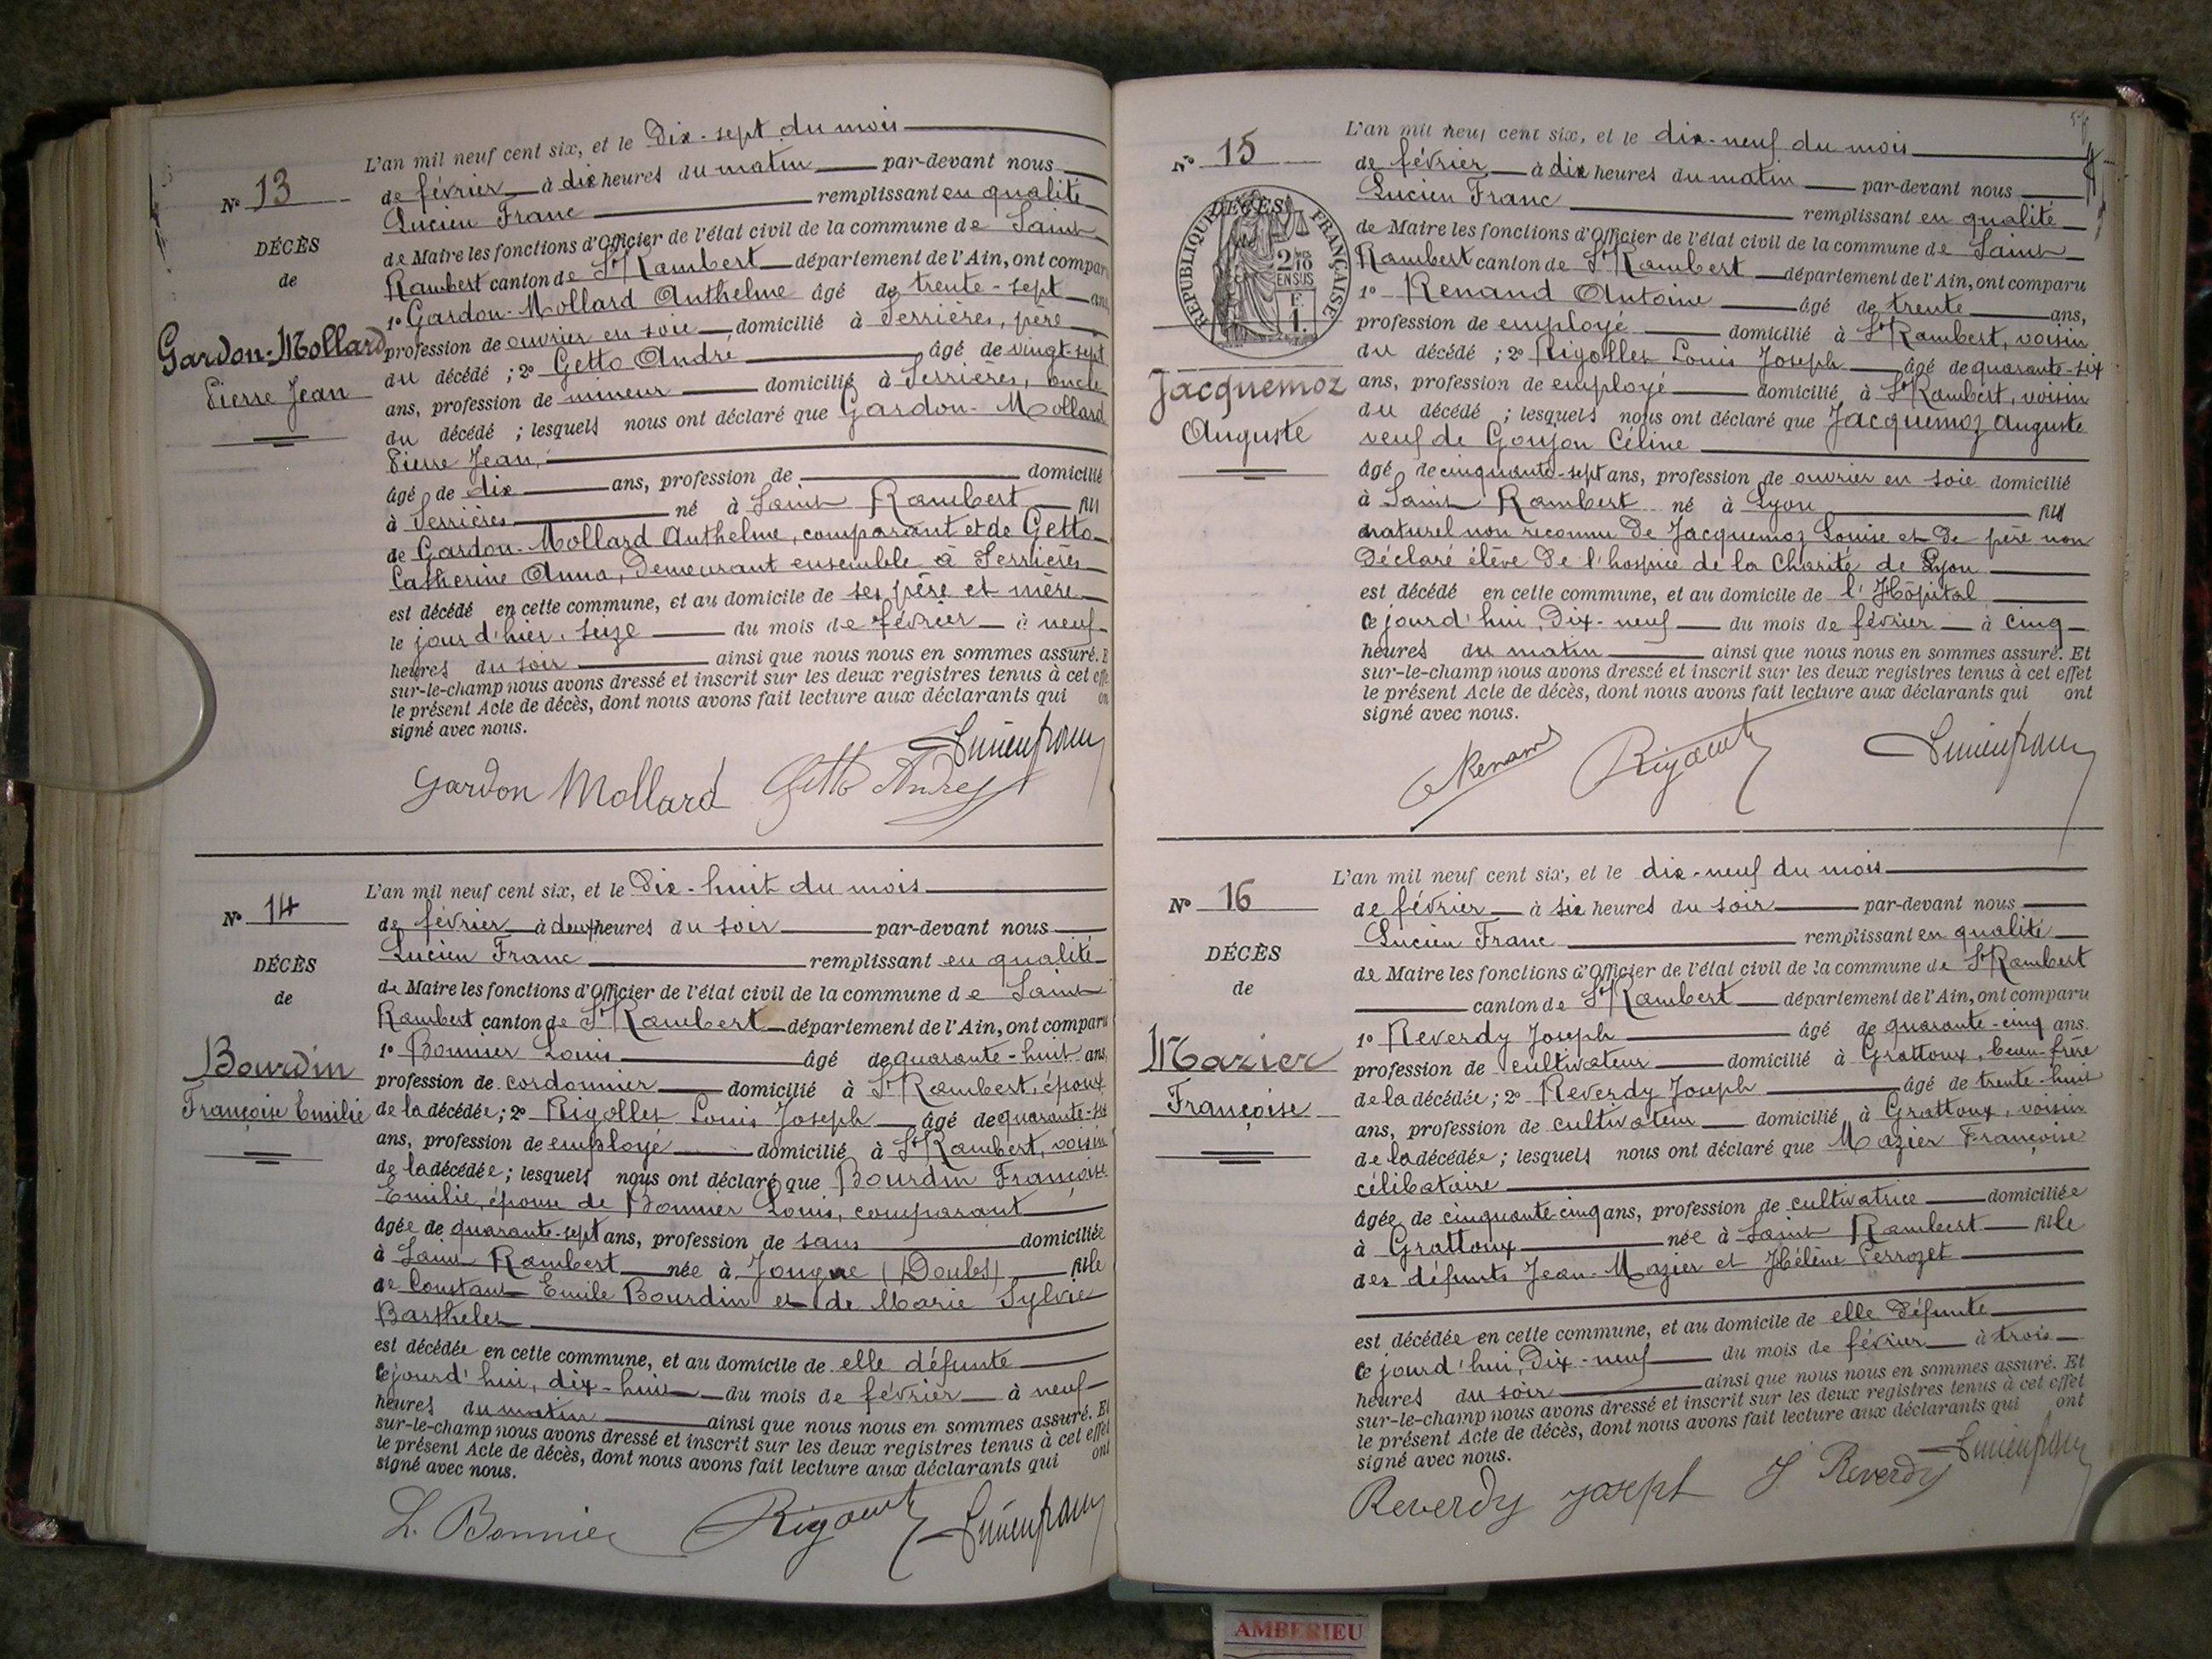 L'an mil neuf cent six, et le Dix-sept du mois
N° 13
de février à dix heures du matin par-devant nous
Lucien Franc remplissant en qualité
DÉCÈS
de Maire les fonctions d'Officier de l'état civil de la commune de Saint
de
Rambert canton de St Rambert département de l'Ain, ont comparu
1° Gardon-Mollard Anthelme âgé de trente-sept ans
Gardon-Mollard
profession de ouvrier en soie domicilié à Serrières, père
du décédé ; 2° Getto André âgé de vingt-sept
Pierre Jean
ans, profession de mineur domicilié à Serrières, oncle
du décédé ; lesquels nous ont déclaré que Gardon-Mollard
Pierre Jean,
âgé de dix ans, profession de domicilié
à Serrières né à Saint Rambert fils
de Gardon-Mollard Anthelme, comparant et de Getto
Catherine Anna, demeurant ensemble à Serrières
est décédé en cette commune, et au domicile de ses père et mère
le jour d'hier, seize du mois de février à neuf
heures du soir ainsi que nous nous en sommes assuré. E
sur-le-champ nous avons dressé et inscrit sur les deux registres tenus à cet effe
le présent Acte de décès, dont nous avons fait lecture aux déclarants qui on
signé avec nous.
Gardon Mollard Getto André Lucien franc
L'an mil neuf cent six, et le Dix-huit du mois
N° 14
de février à deux heures du soir par-devant nous
Lucien Franc remplissant en qualité
DÉCÈS
de Maire les fonctions d'Officier de l'état civil de la commune de Saint
de
Rambert canton de St Rambert département de l'Ain, ont comparu
1° Bonnier Louis âgé de quarante-huit ans,
Bourdin
profession de cordonnier domicilié à St Rambert, époux
Françoise Emilie
de la décédée ; 2° Rigollet Louis Joseph âgé de quarante-six
ans, profession de employé domicilié à St Rambert, voisin
de la décédée ; lesquels nous ont déclaré que Bourdin Françoise
Emilie, épouse de Bonnier Louis, comparant
âgée de quarante-sept ans, profession de sans domiciliée
à Saint Rambert née à Jougne (Doubs) fille
de Constant Emile Bourdin et de Marie Sylvie
Barthelet
est décédée en cette commune, et au domicile de elle défunte
cejourd'hui, dix-huit du mois de février à neuf
heures du matin ainsi que nous nous en sommes assuré. Et
sur-le-champ nous avons dressé et inscrit sur les deux registres tenus à cet effet
le présent Acte de décès, dont nous avons fait lecture aux déclarants qui ont
signé avec nous.
L. Bonnier Lucien franc
L'an mil neuf cent six, et le dix-neuf du mois
N° 15
de février à dix heures du matin par-devant nous
Lucien Franc remplissant en qualité
DÉCÈS
RÉPUBLIQUE FRANÇAISE
2/10 EN SUS
F. 1.
de Maire les fonctions d'Officier de l'état civil de la commune de Saint
Rambert canton de St Rambert département de l'Ain, ont comparu
1° Renand Antoine âgé de trente ans,
profession de employé domicilié à St Rambert, voisin
du décédé ; 2° Rigollet Louis Joseph âgé de quarante-six
Jacquemoz
ans, profession de employé domicilié à St Rambert, voisin
du décédé ; lesquels nous ont déclaré que Jacquemoz Auguste
Auguste
veuf de Goujon Céline
âgé de cinquante-sept ans, profession de ouvrier en soie domicilié
à Saint Rambert né à Lyon fils
naturel non reconnu de Jacquemoz Louise et de père non
Déclaré élève de l'hospice de la Charité de Lyon
est décédé en cette commune, et au domicile de l'Hôpital
ce jourd'hui, Dix-neuf du mois de février à cinq
heures du matin ainsi que nous nous en sommes assuré. Et
sur-le-champ nous avons dressé et inscrit sur les deux registres tenus à cet effet
le présent Acte de décès, dont nous avons fait lecture aux déclarants qui ont
signé avec nous.
Renand Lucien franc
L'an mil neuf cent six, et le dix-neuf du mois
N° 16
de février à six heures du soir par-devant nous
Lucien Franc remplissant en qualité
DÉCÈS
de Maire les fonctions d'Officier de l'état civil de la commune de St Rambert
de
canton de St Rambert département de l'Ain, ont comparu
1° Reverdy Joseph âgé de quarante-cinq ans.
Mazier
profession de cultivateur domicilié à Grattoux, beau-frère
de la décédée ; 2° Reverdy Joseph âgé de trente-huit
Françoise
ans, profession de cultivateur domicilié à Grattoux, voisin
de la décédée ; lesquels nous ont déclaré que Mazier Françoise
célibataire
âgée de cinquante cinq ans, profession de cultivatrice domiciliée
à Grattoux née à Saint Rambert fille
des défunts Jean-Mazier et Hélène Perrozet
est décédée en cette commune, et au domicile de elle défunte
ce jourd'hui, Dix-neuf du mois de février à trois
heures du soir ainsi que nous nous en sommes assuré. Et
sur-le-champ nous avons dressé et inscrit sur les deux registres tenus à cet effet
le présent Acte de décès, dont nous avons fait lecture aux déclarants qui ont
signé avec nous.
Reverdy joseph J. Reverdy Lucien franc
AMBERIEU